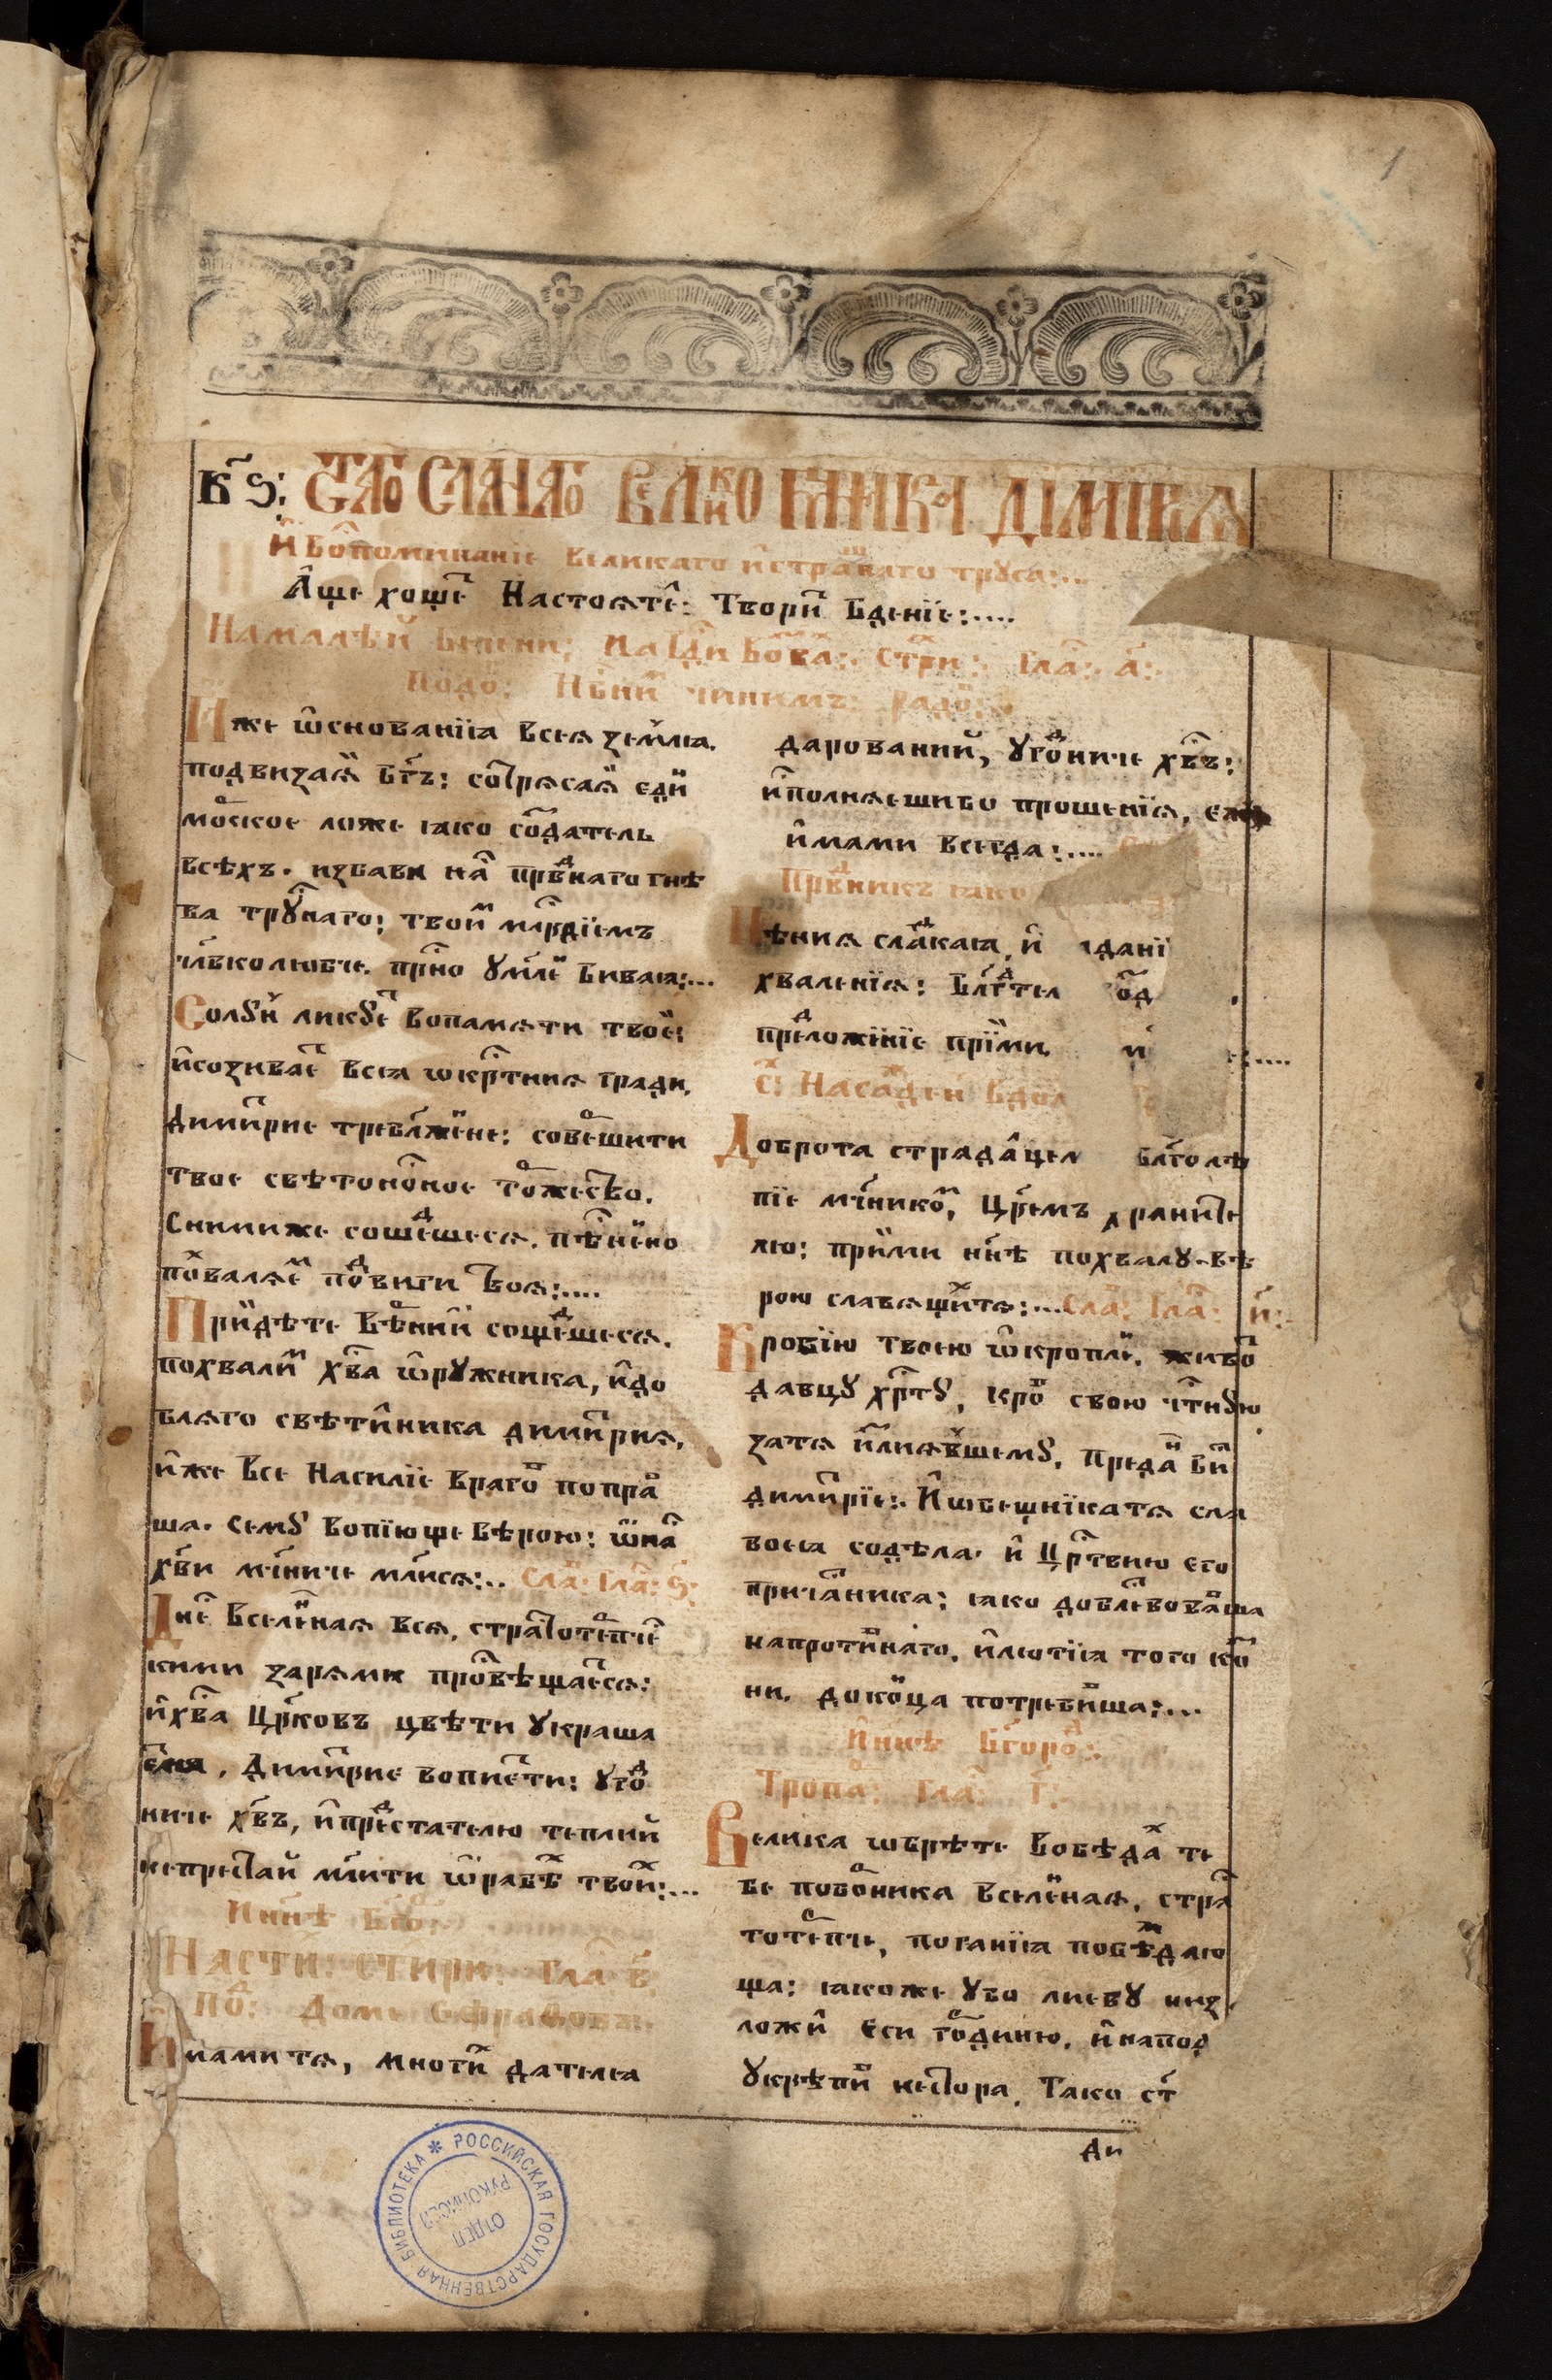 1
к҃ѕ: Ст҃аго Славнаго Великом҃ника Димитриѧ
И҆ Во̑поминаніе великаго и҆стра́наго трꙋса:..
А҆ще хоще҃ Настоѧте̑: Твори҃ бденїе:....
На малѣй вечени; На Гд̑и во̑ва̑: Ст҃ри: Гла̑: а҃:
Подо̑: Нб҃ни҃ чинимъ: радо̑:
Иже ѡ҆снованїꙗ всеѧ земли.
подвизаѧ̑ бг҃ъ: сотрѧсаѧ еди̑
мо҆ское ложе ꙗко со҃датель
всѣхъ. избави на҃ прв҃наго гнѣ
ва трꙋ́наго: твои҃ млр҃дїемъ
чл҃вколюбче. пр҃но ꙋмл҃е биваꙗ:...
Солꙋ́н ликꙋе҃ вопамѧти твое҃:
и҆созивае҃ всѧ ѡкр҃тниѧ гради.
димит҃рие требл҃жене: сове҃шити
твое свѣтоно́ное то҃жество.
Снимиже соше́шесѧ. пѣ̑нено
по҃валѧе҃ по́виги твоѧ:....
Прїидѣте вѣ́нии соше́шесѧ.
похвали҃ хв҃а ѡ҆рꙋжника, и҆до
блѧго свѣти҃ника димит҃риѧ,
и҆же все насилїе враго҃ попра҃
ша. семꙋ вопїюще вѣрою: ѡ҆на҃
хв҃и м҃чниче мл҃исѧ:.. Сла̑: Гла̑: ѕ҃:
Дне҃ вселе̑наѧ всѧ, стра҃тоте́пче
кими зарѧми про҃вѣщае҃сѧ:
и҆хв҃а Цр҃ковъ цвѣти ꙋкраша
емꙗ, димит҃рие вопие҃ти: ꙋго́
ниче хв҃ъ, и҆пре́стателю теплий
непрестай мл҃ити ѡ҆раб҃ѣ твои҃:...
Ин҃нѣ Бг҃о:
Насти̑: стири: Гла̑ в҃:
По̑: Доме Єфрафовъ:
Имамитѧ, многи҃ дателѧ
дарований, ꙋго́ниче хв҃ъ:
и҆полнѧешибо прошенїѧ,
и҆мами всегда:....
Прв҃никъ ꙗко
Пѣниѧ сла́каꙗ, и҆ аданї
хваленїѧ: блг҃тел од
пре́ложенїе прїими
с҃: Насаден вдол
Доброта страда̑цем благолѣ
пїе м҃чнико҃, Цр҃емъ храните
лю: прїими нн҃ѣ похвалꙋ вѣ
рою славѧщи҃тѧ:... Сла̑: Гла̑: и҃:
Кровїю твоею ѡ҆кропле̑. живо
давцꙋ хр҃тꙋ, кро̑ свою ч҃тнꙋю
затѧ и҆лиѧ́вшемꙋ. преда́ би҃
димит҃рїе: И҆ ѡбещнїкатѧ сла
воеꙗ содѣла. и҆ Цр҃твию его
прича҃ника: ꙗко добле҃вова҃ша
напроти҃наго. и҆лютїꙗ того ко҃
ни. доко̑ца потреби҃ша:...
И҆ нн҃ѣ Бг҃оро́:
Тропа̑: гла̑: г҃:
Велика ѡбрѣте вобѣда҃ те
бе побо́ника вселе̑наѧ, стра҃
тоте́пче, поганїꙗ побѣ́даю
ща: ꙗкоже ꙋбо лиевꙋ низ
ложи̑ еси го́диню. и҆напод
ꙋкрѣпи҃ нестора. Тако ст҃
Ди
РОССИЙСКАЯ ГОСУДАРСТВЕННАЯ БИБЛИОТЕКА
ОТДЕЛ
РУКОПИСЕЙ